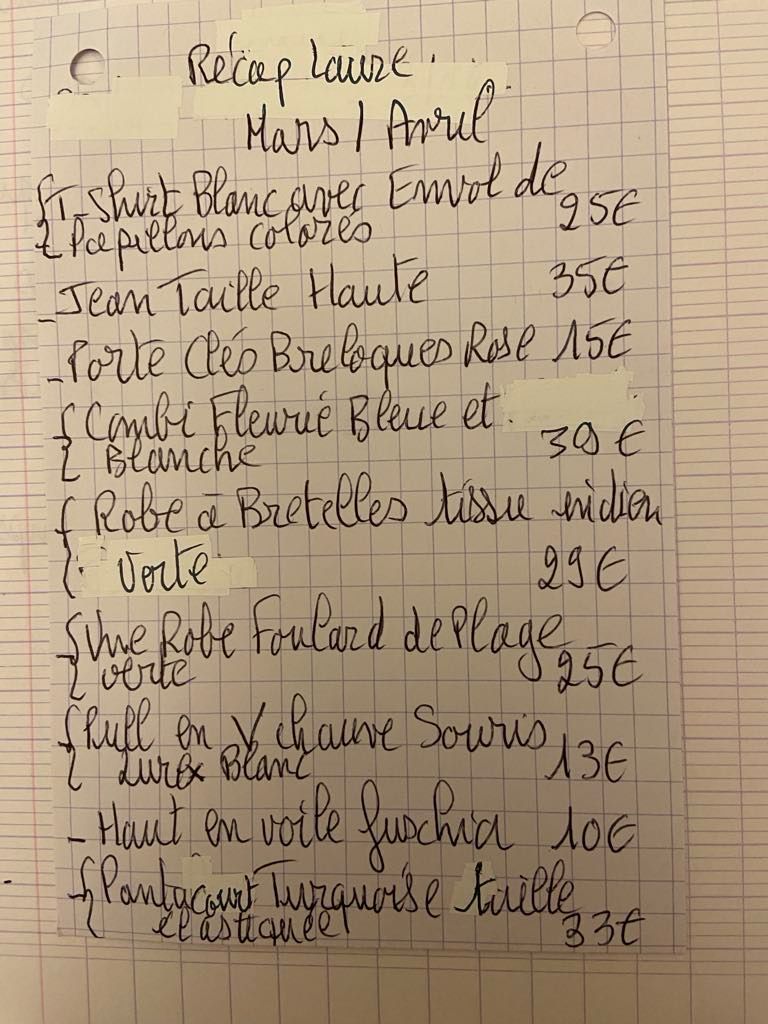 Récap Laure.
Mars / Avril
T-Shirt Blanc avec Envol de
Papillons colorés 25€
- Jean Taille Haute 35€
- Porte Clés Breloques Rose 15€
Combi Fleurie Bleue et
Blanche 39€
Robe à Bretelles tissu indien
Verte 29€
Une Robe Foulard de Plage
verte 25€
Pull en V chauve Souris
Lurex Blanc 13€
- Haut en voile fuschia 10€
Pantacourt Turquoise taille
élastiquée 33€